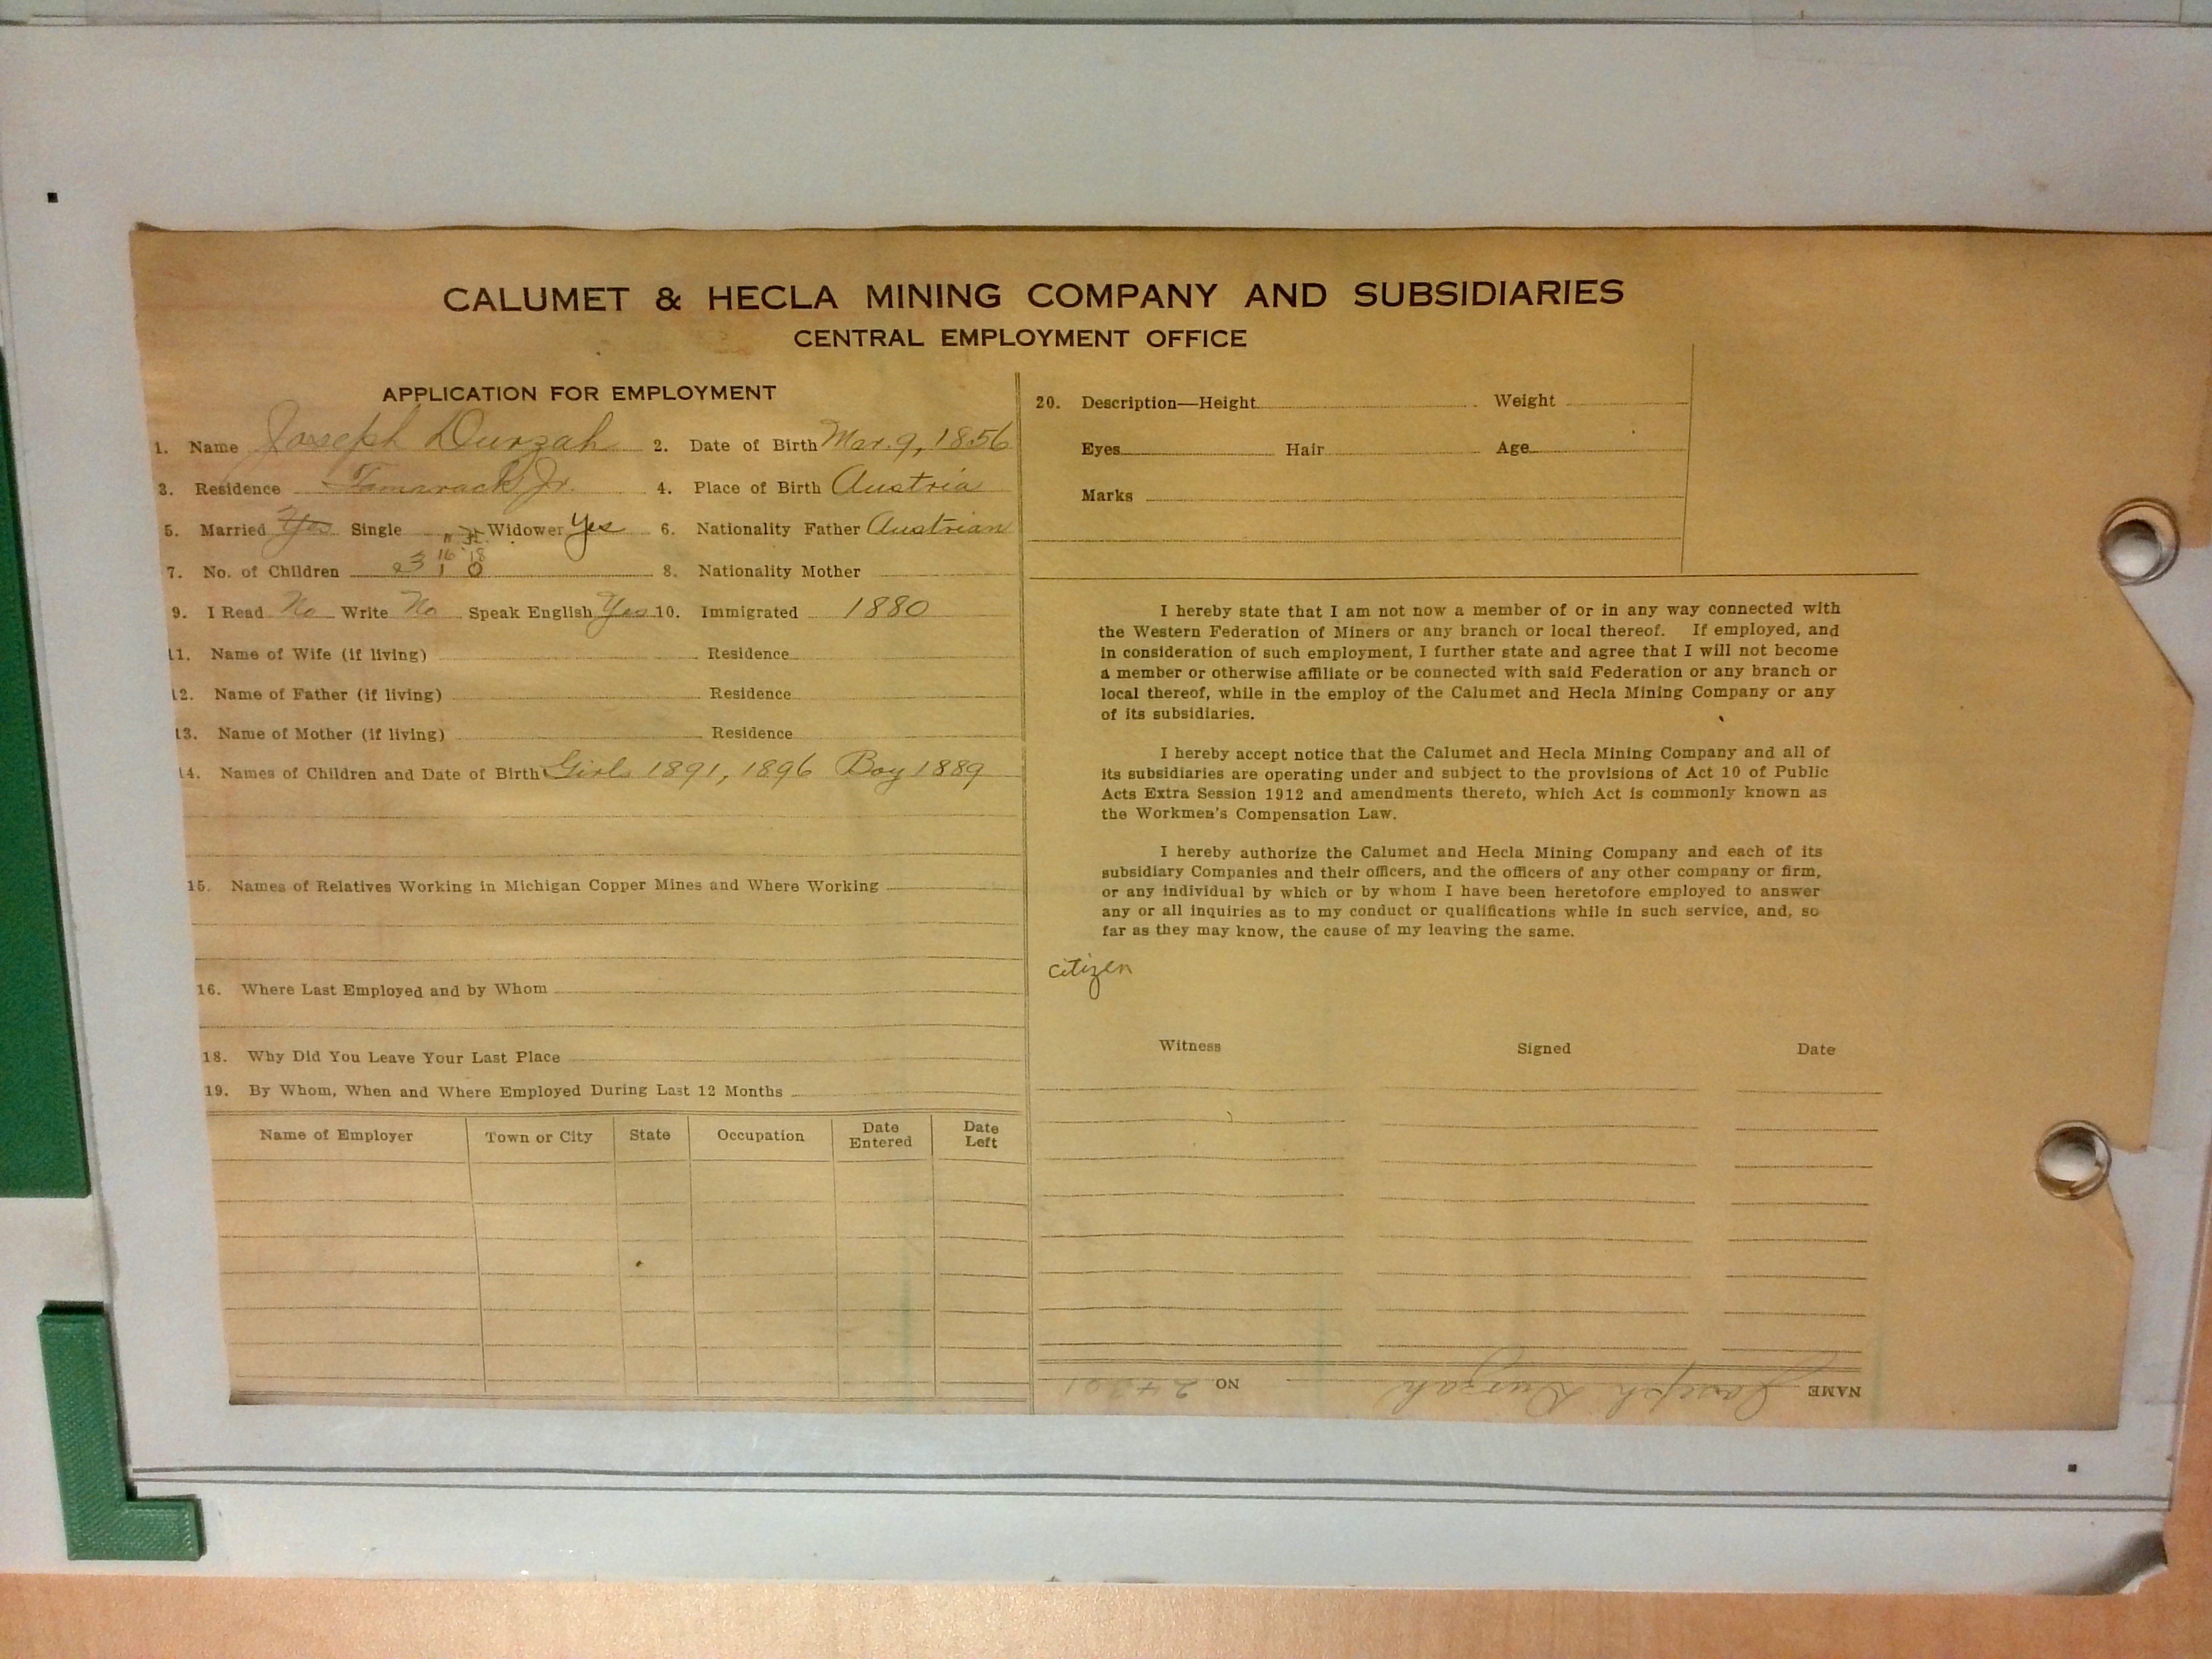 CALUMET & HECLA MINING COMPANY AND SUBSIDIARIES
CENTRAL EMPLOYMENT OFFICE
APPLICATION FOR EMPLOYMENT
1. Name Joseph Durzah 2. Date of Birth Mar. 9, 1856
3. Residence Tamarack Jr. 4. Place of Birth Austria
5. Married Yes Single Widower Yes 6. Nationality Father Austrian
16 18
7. No. of Children 3 1 0 8. Nationality Mother
9. I Read No Write No Speak English Yes 10. Immigrated 1880
11. Name of Wife (if living) Residence
12. Name of Father (if living) Residence
13. Name of Mother (if living) Residence
14. Names of Children and Date of Birth Girls 1891, 1896 Boy 1889
15. Names of Relatives Working in Michigan Copper Mines and Where Working
16. Where Last Employed and by Whom
18. Why Did You Leave Your Last Place
19. By Whom, When and Where Employed During Last 12 Months
Name of Employer Town or City State Occupation Date Entered Date Left
20. Description—Height Weight
Eyes Hair Age
Marks
I hereby state that I am not now a member of or in any way connected with
the Western Federation of Miners or any branch or local thereof. If employed, and
in consideration of such employment, I further state and agree that I will not become
a member or otherwise affiliate or be connected with said Federation or any branch or
local thereof, while in the employ of the Calumet and Hecla Mining Company or any
of its subsidiaries.
I hereby accept notice that the Calumet and Hecla Mining Company and all of
its subsidiaries are operating under and subject to the provisions of Act 10 of Public
Acts Extra Session 1912 and amendments thereto, which Act is commonly known as
the Workmen's Compensation Law.
I hereby authorize the Calumet and Hecla Mining Company and each of its
subsidiary Companies and their officers, and the officers of any other company or firm,
or any individual by which or by whom I have been heretofore employed to answer
any or all inquiries as to my conduct or qualifications while in such service, and, so
far as they may know, the cause of my leaving the same.
citizen
Witness Signed Date
NAME Joseph Durzah NO